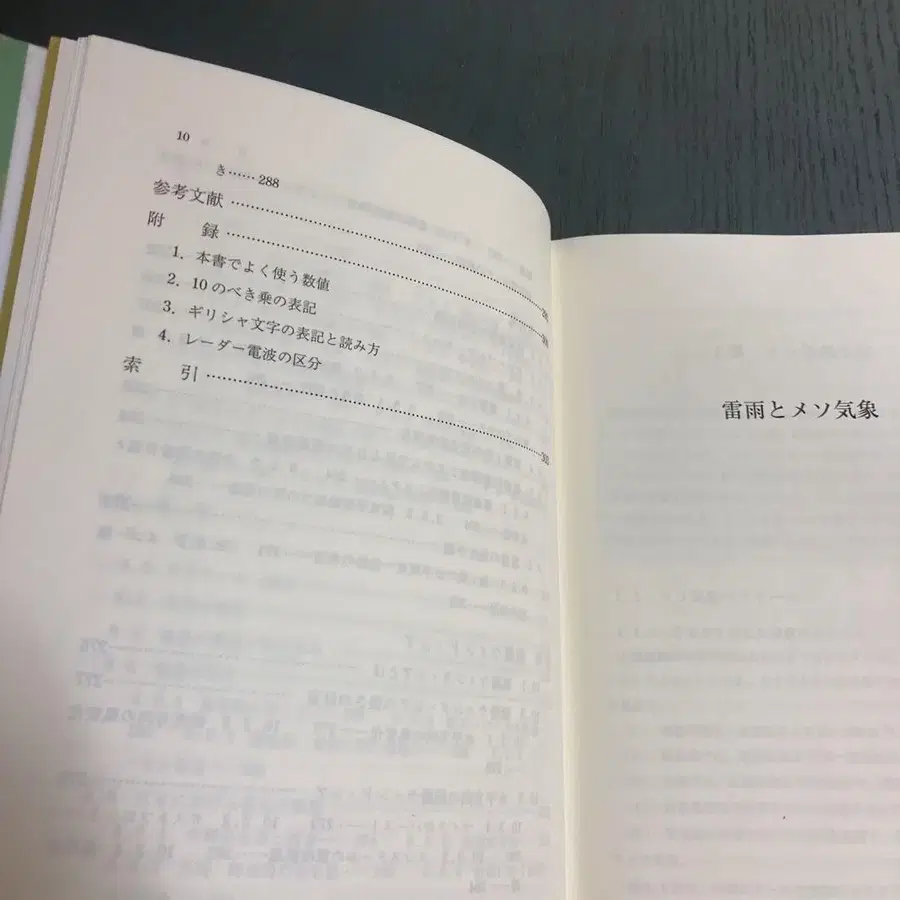 10
き……288
参考文献
附　録
1. 本書でよく使う数値
2. 10のべき乗の表記
3. ギリシャ文字の表記と読み方
4. レーダー電波の区分
索　引
雷雨とメソ気象